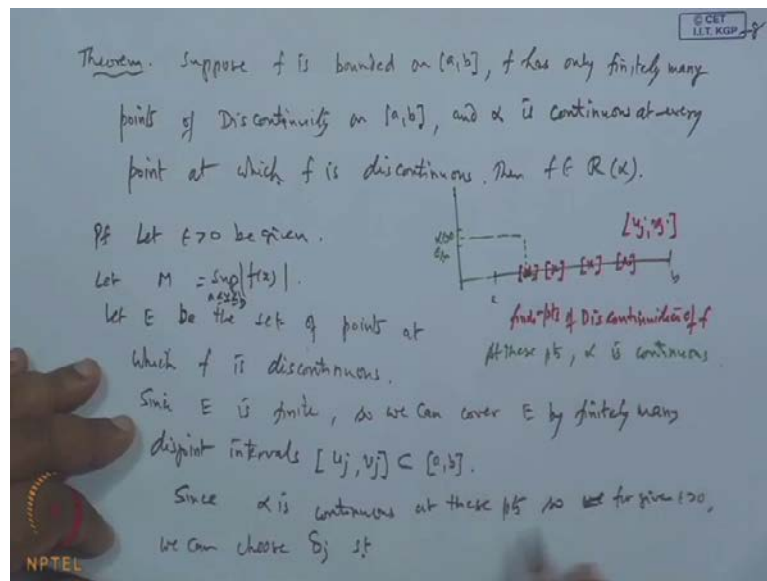 © CET
I.I.T. KGP
Theorem. Suppose f is bounded on [a,b], f has only finitely many
points of Discontinuity on [a,b], and α is continuous at every
point at which f is discontinuous. Then f ∈ R(α).
Pf Let ε>0 be given.
Let M = sup |f(x)|.
a≤x≤b
Let E be the set of points at
which f is discontinuous.
[uj, vj]
b
pts of Discontinuities of f
At these pts, α is continuous
Since E is finite, so we can cover E by finitely many
disjoint intervals [uj, vj] ⊂ [a,b].
Since α is continuous at these pts so for given ε>0,
we can choose δj st
NPTEL